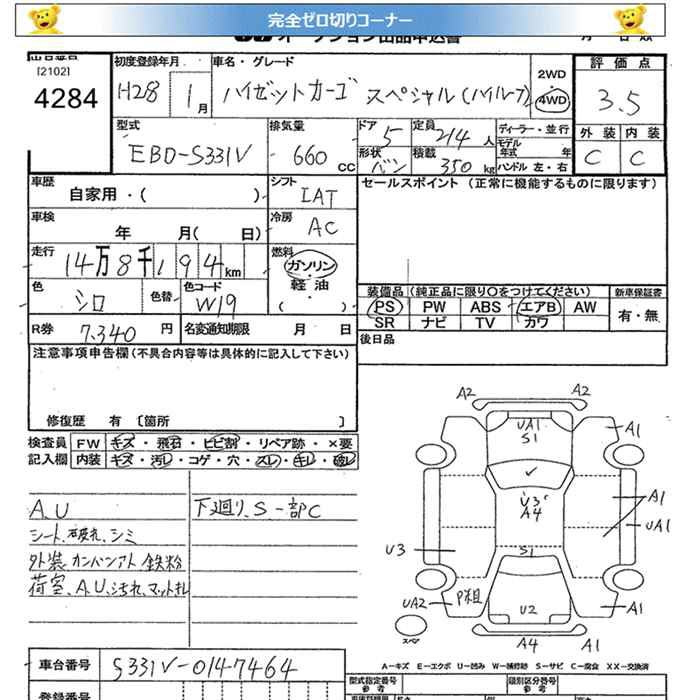 完全ゼロ切りコーナー
オークション出品申込書
出品番号 初度登録年月 車名・グレード 2WD 評価点
[2102]
4284 H28 1月 ハイゼットカーゴ スペシャル(ハイルーフ) 4WD 3.5
型式 排気量 ドア 5 定員 2/4人 ディーラー・並行 外装 内装
EBD-S331V 660 CC 形状 バン 積載 350kg モデル年式 年 C C
ハンドル 左・右
車歴 自家用・( ) シフト IAT セールスポイント (正常に機能するものに限ります)
車検 年 月( 日) 冷房 AC
走行 14万8千194km 燃料 ガソリン・軽油・( )
色 シロ 色替 色コード W19
装備品 (純正品に限り○をつけてください) 新車保証書
PS PW ABS エアB AW 有・無
SR ナビ TV カワ
R券 7,340円 名変通知期限 月 日
後日品
注意事項申告欄(不具合内容等は具体的に記入して下さい)
修復歴 有 [箇所 ]
検査員 FW キズ・飛石・ヒビ割・リペア跡・×要
記入欄 内装 キズ・汚レ・コゲ・穴・スレ・キレ・破レ
A.U 下廻り、S一部C
シート、破れ、シミ
外装 カンバンアト 鉄粉
荷室、A.U、汚れ、マットキレ
A2 A2
UA1
S1
A1
U3
A4
A1
UA1
U3 S1
UA2 P粗 U2 A1
A4 A1
スペア
A-キズ E-エクボ U-凹み W-補修跡 S-サビ C-腐食 XX-交換済
車台番号 S331V-0147464
型式指定番号 参考 類別区分番号 参考
登録番号